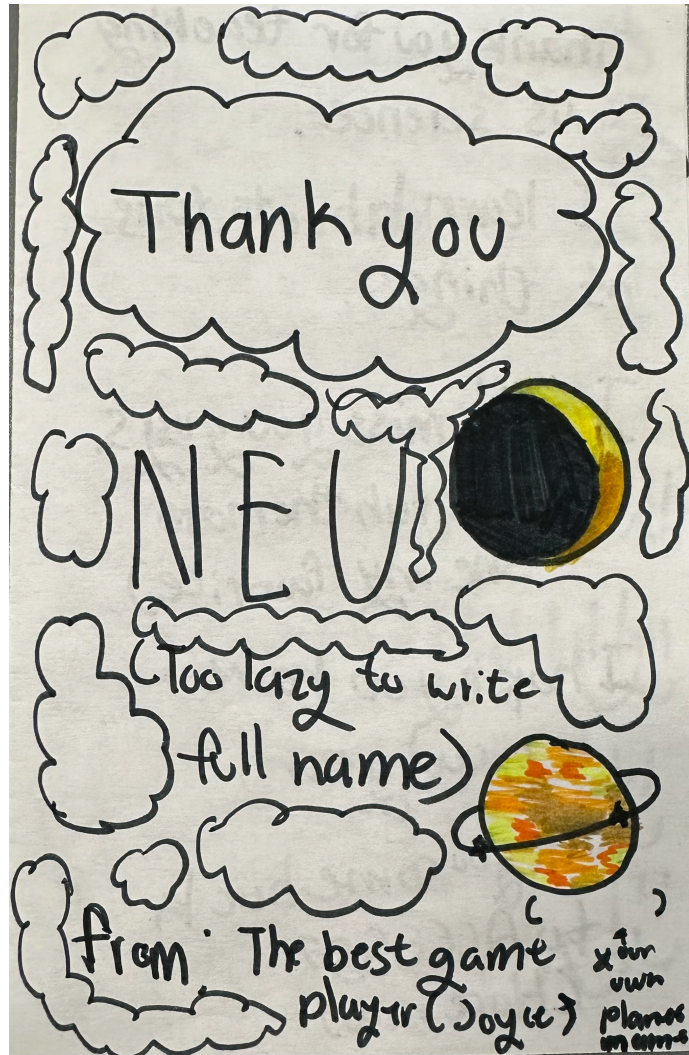 Thank you
NEU
(Too lazy to write
full name)
( )
from: The best game
player (Joyce)
↑
your
own
planet